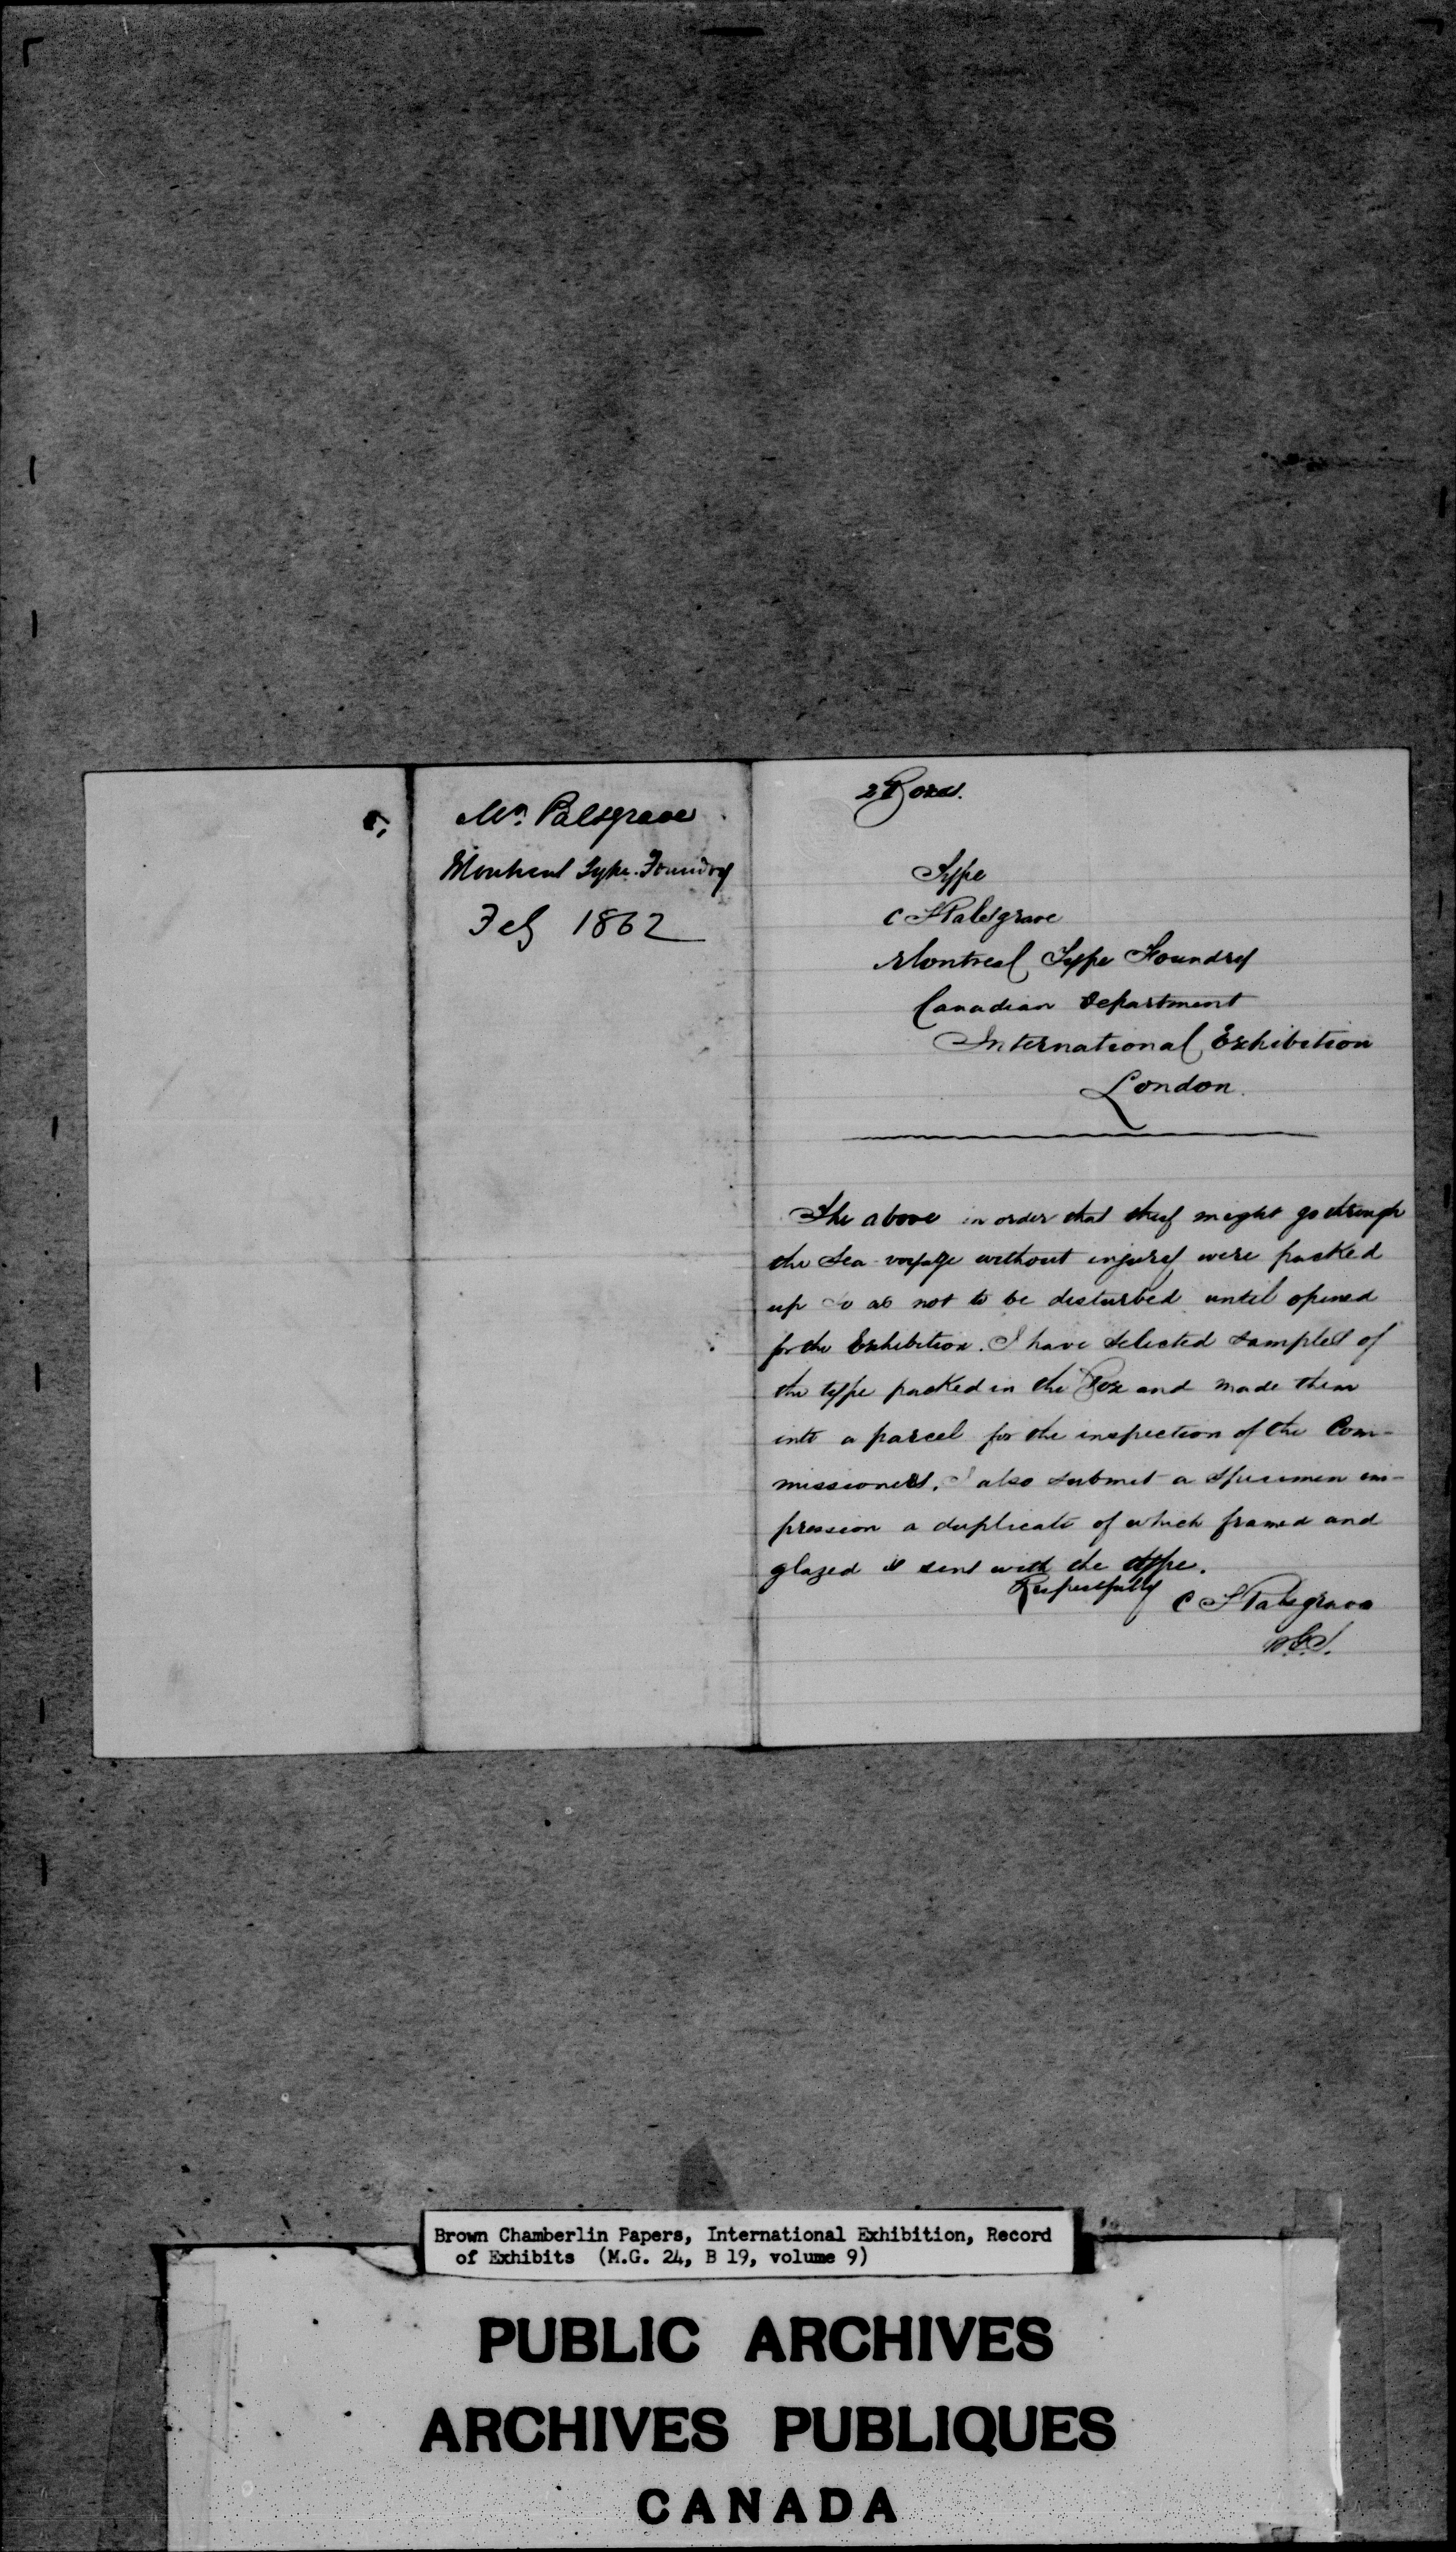 Mr. Palsgrave
Montreal Type Foundry
Feby 1862
2 Boxes.
Type
C T Palsgrave
Montreal Type Foundry
Canadian Department
International Exhibition
London.
The above in order that they might go through
the Sea voyage without injury were packed
up so as not to be disturbed until opened
for the Exhibition. I have selected samples of
the type packed in the Box and made them
into a parcel for the inspection of the Com-
missioners. I also submit a specimen im-
pression a duplicate of which framed and
glazed is sent with the type.
Respectfully C T Palsgrave
Brown Chamberlin Papers, International Exhibition, Record
of Exhibits (M.G. 24, B 19, volume 9)
PUBLIC ARCHIVES
ARCHIVES PUBLIQUES
CANADA